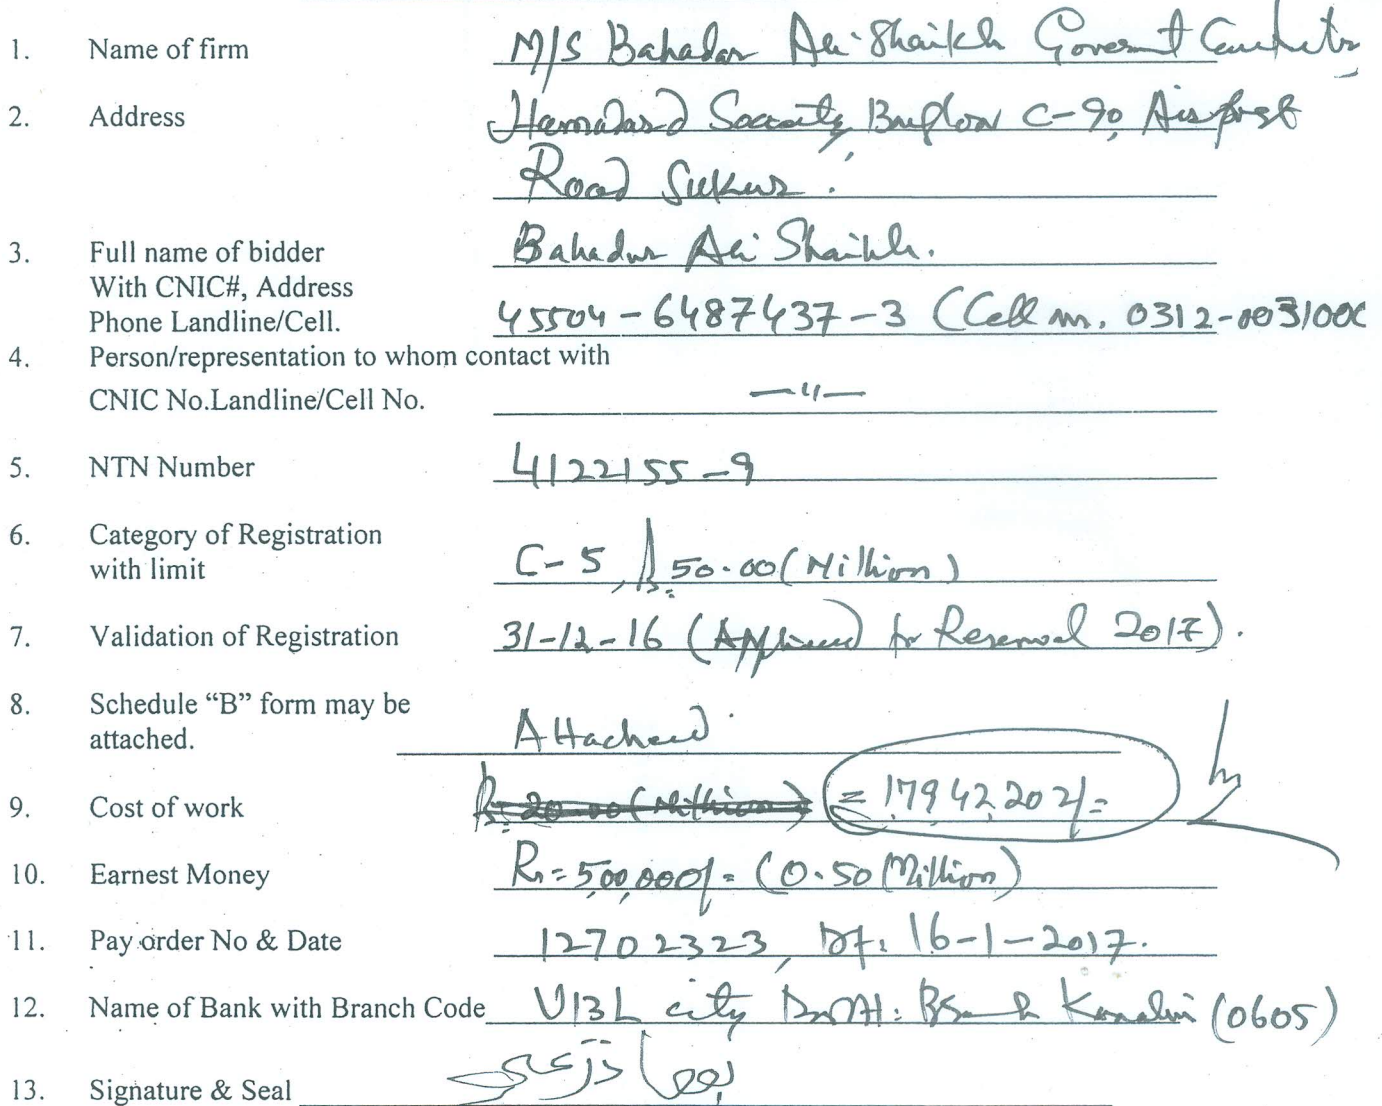 1. Name of firm M/S Bahadar Ali Shaikh Goverment
2. Address Hamdard Society, Bunglow C-90, Airport
Road Sukur.
3. Full name of bidder Bahadur Ali Shaikh.
With CNIC#, Address
Phone Landline/Cell. 45504-6487437-3 (Cell no. 0312-
4. Person/representation to whom contact with
CNIC No.Landline/Cell No. —"—
5. NTN Number 4122155-9
6. Category of Registration
with limit C-5, Rs. 50.00 (Million)
7. Validation of Registration 31-12-16 (Applied for Renewal 2017).
8. Schedule “B” form may be
attached. Attached
9. Cost of work Rs. 20.00 (Million) = 17942202/=
10. Earnest Money Rs = 500,000/= (0.50 Million)
11. Pay order No & Date 12702323, Dt: 16-1-2017.
12. Name of Bank with Branch Code UBL city (0605)
13. Signature & Seal